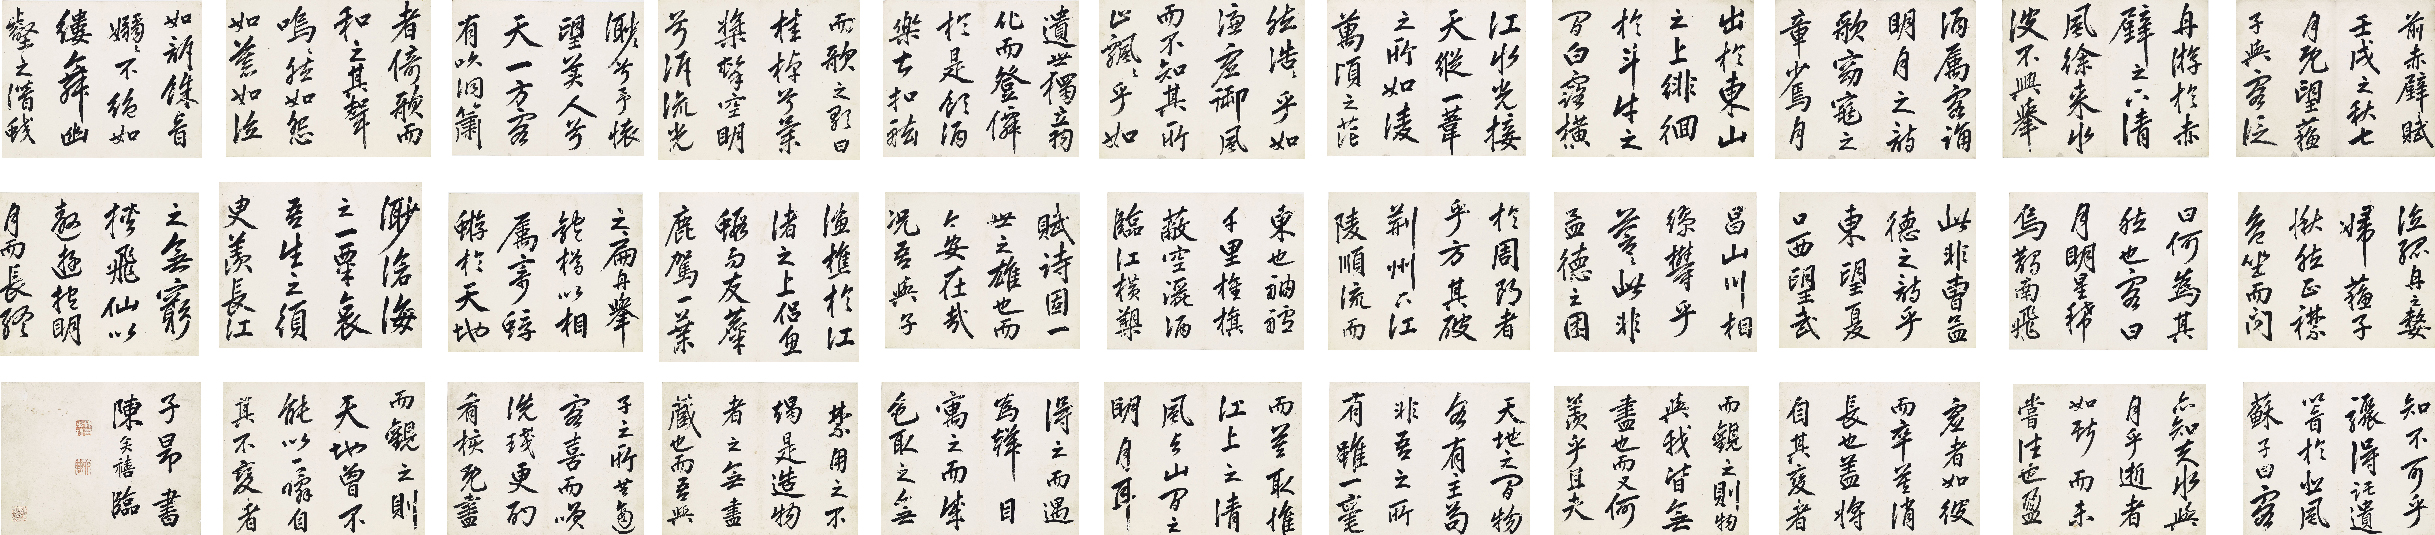 前赤壁賦
壬戌之秋七
月既望蘇
子與客泛
舟游於赤
壁之下清
風徐来水
波不興舉
酒属客誦
明月之詩
歌窈窕之
章少焉月
出於東山
之上徘徊
於斗牛之
間白露橫
江水光接
天縱一葦
之所如凌
萬頃之茫
然浩〻乎如
馮虛御風
而不知其所
止飄〻乎如
遺世獨立羽
化而登僊
於是飲酒
樂甚扣舷
而歌之歌曰
桂棹兮蘭
槳擊空明
兮泝流光
渺〻兮予懷
望美人兮
天一方客
有吹洞簫
者倚歌而
和之其聲
嗚〻然如怨
如慕如泣
如訴餘音
嫋〻不絕如
縷舞幽
壑之潛蛟
泣孤舟之嫠
婦蘇子
愀然正襟
危坐而問
曰何為其
然也客曰
月明星稀
烏鵲南飛
此非曹孟
德之詩乎
東望夏
口西望武
昌山川相
繆鬱乎
蒼〻此非
孟德之困
於周郎者
乎方其破
荊州下江
陵順流而
東也舳艫
千里旌旗
蔽空灑酒
臨江橫槊
賦詩固一
世之雄也而
今安在哉
況吾與子
漁樵於江
渚之上侶魚
蝦而友麋
鹿駕一葉
之扁舟舉
匏樽以相
屬寄蜉
蝣於天地
渺滄海
之一粟哀
吾生之須
臾羨長江
之無窮
挾飛仙以
遨遊抱明
月而長終
知不可乎
驟得託遺
響於悲風
蘇子曰客
亦知夫水與
月乎逝者
如斯而未
嘗往也盈
虛者如彼
而卒莫消
長也蓋將
自其變者
而觀之則物
與我皆無
盡也而又何
羨乎且夫
天地之間物
各有主苟
非吾之所
有雖一毫
而莫取惟
江上之清
風與山間之
明月耳
得之而遇
為聲目
寓之而成
色取之無
禁用之不
竭是造物
者之無盡
藏也而吾與
子之所共適
客喜而笑
洗盞更酌
肴核既盡
而觀之則
天地曾不
能以一瞬自
其不變者
子昂書
陳奕禧臨